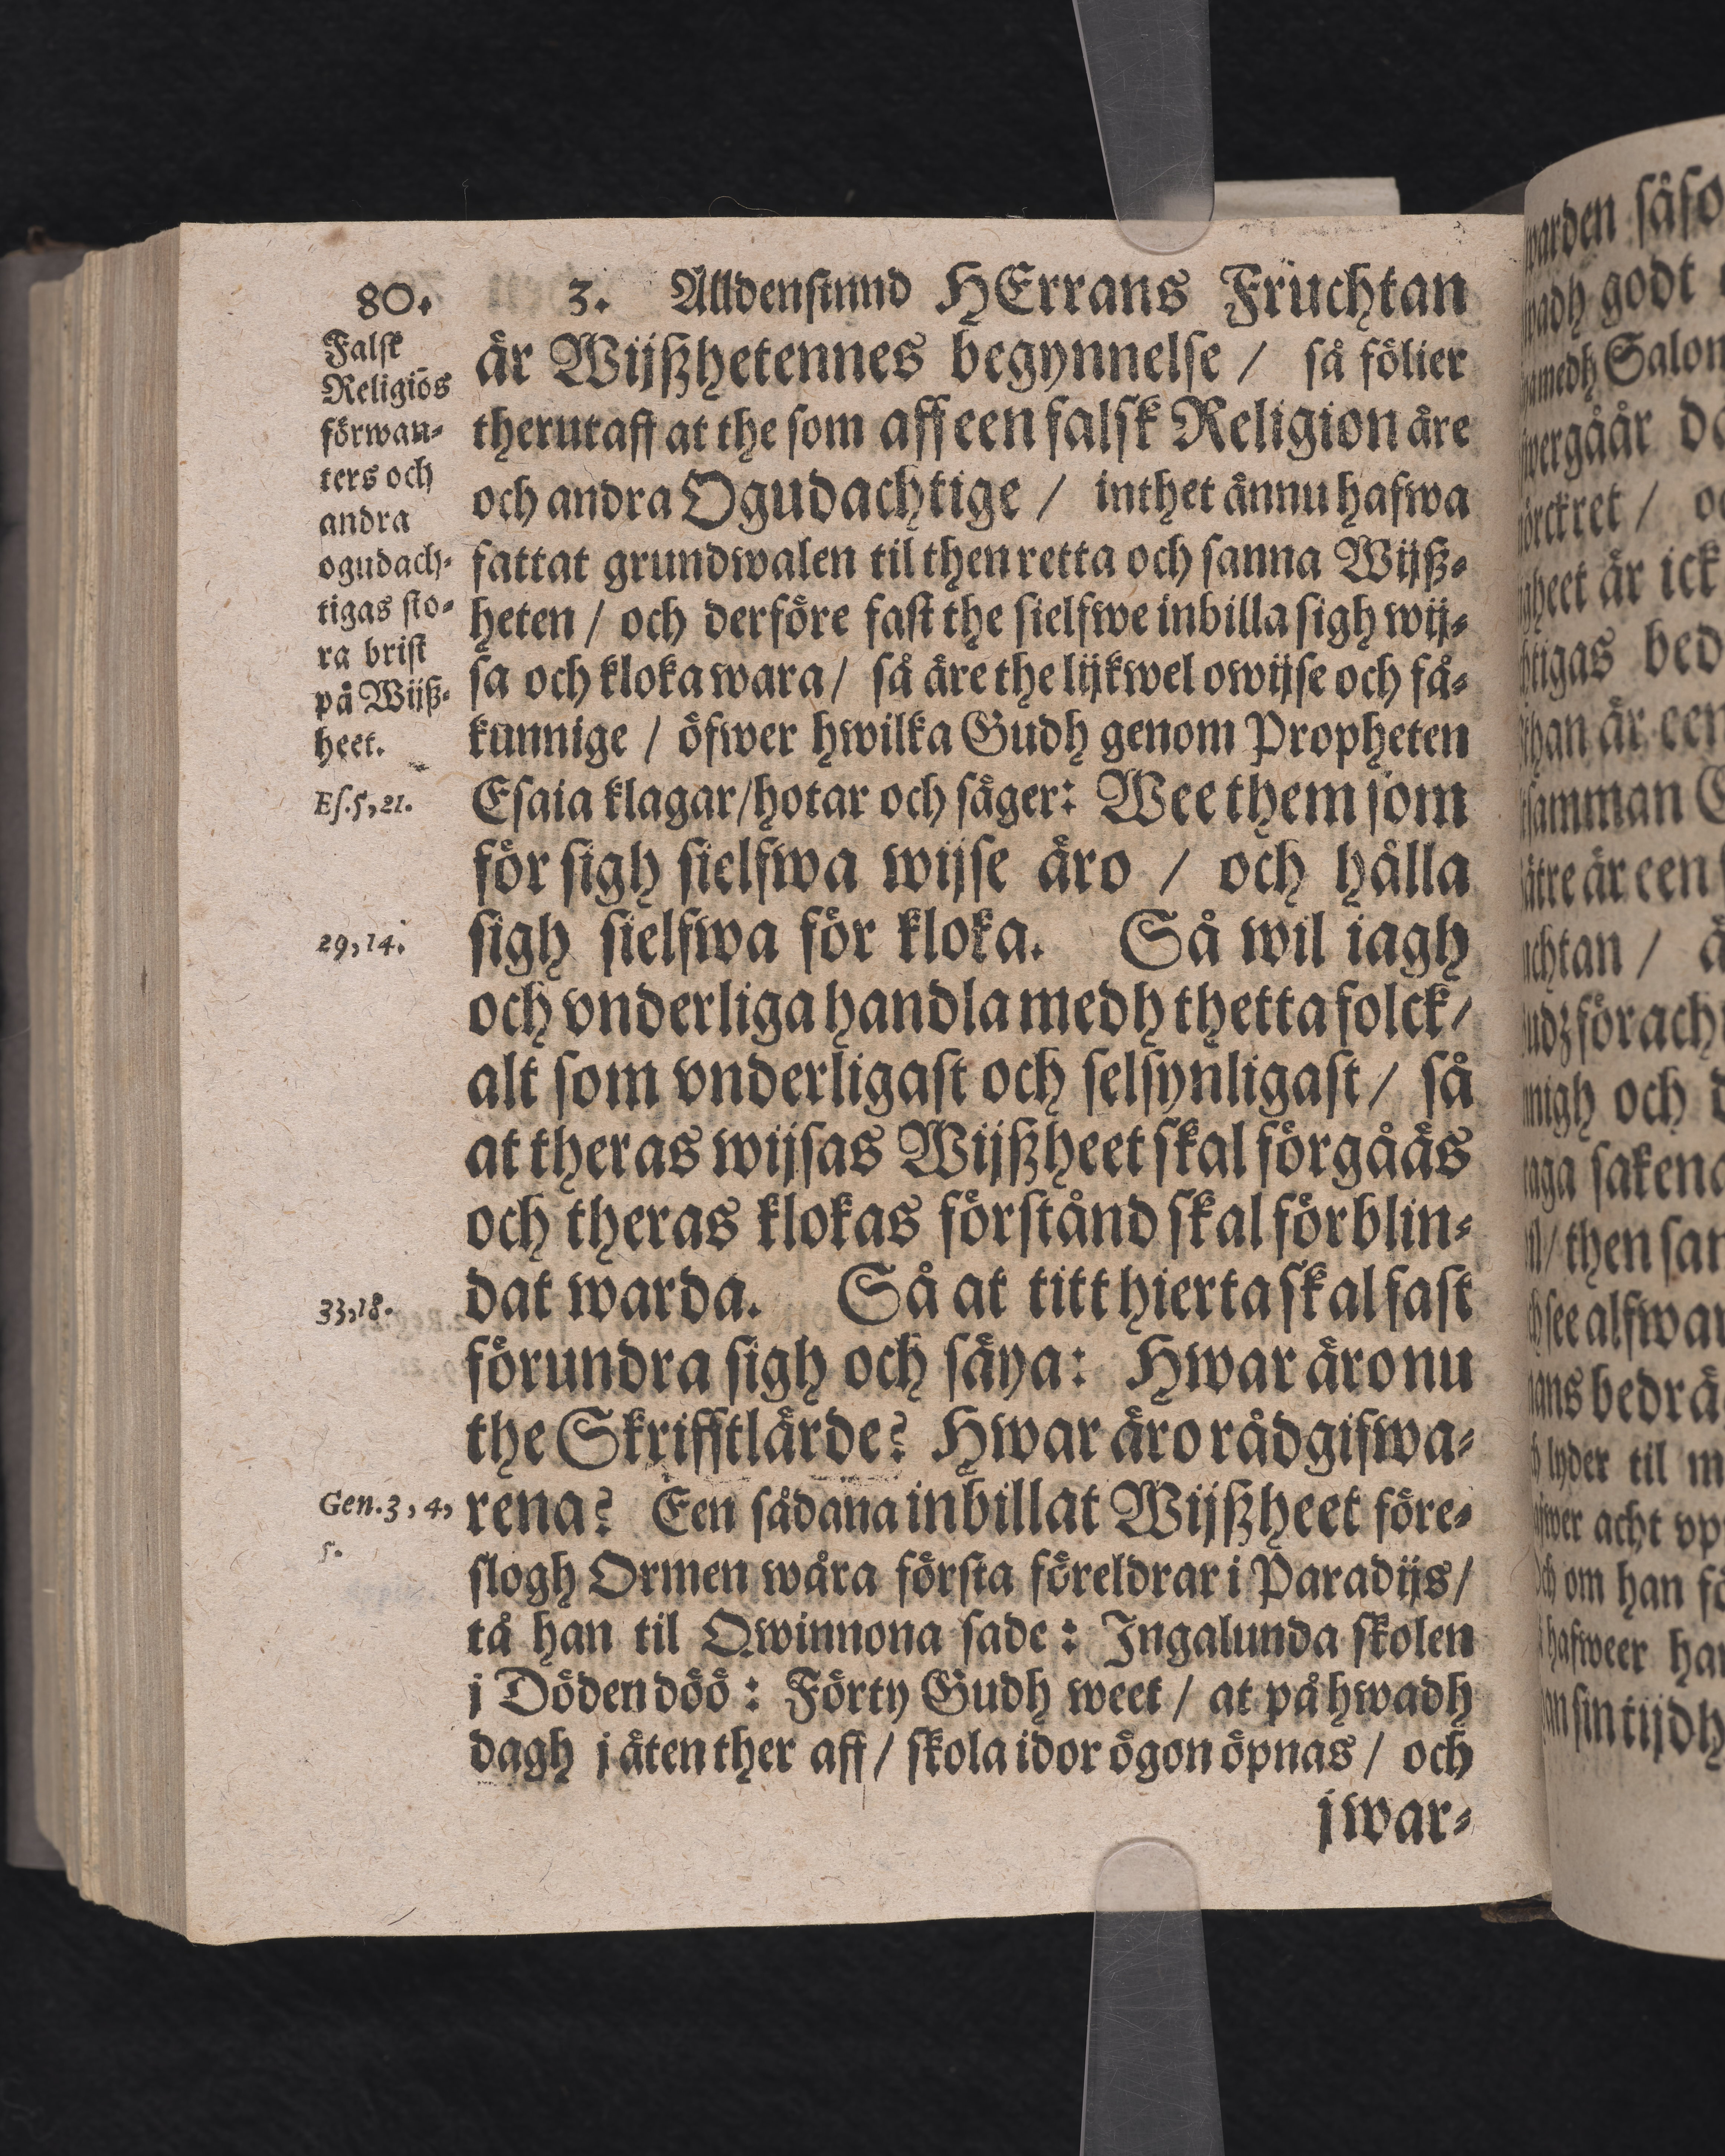 80.
3. Alldenstund HErrans Fruchtan
är Wijßhetennes begynnelse / så fölier
therutaff at the som aff een falsk Religion äre
och andra Ogudachtige / inthet ännu hafwa
fattat grundwalen til then retta och sanna Wijß-
heten / och derföre fast the sielfwe inbilla sigh wij-
sa och kloka wara / så äre the lijkwel owijse och få-
kunnige / öfwer hwilka Gudh genom Propheten
Esaia klagar/hotar och säger: Wee them som
för sigh sielfwa wijse äro / och hålla
sigh sielfwa för kloka. Så wil iagh
och vnderliga handla medh thetta folck/
alt som vnderligast och selsynligast / så
at theras wijsas Wijßheet skal förgåås
och theras klokas förstånd skal förblin-
dat warda. Så at titt hierta skal fast
förundra sigh och säya: Hwar äro nu
the Skrifftlärde? Hwar äro rådgifwa-
rena? Een sådana inbillat Wijßheet före-
slogh Ormen wåra första föreldrar i Paradijs/
tå han til Qwinnona sade: Ingalunda skolen
j Döden döö: Förty Gudh weet / at på hwadh
dagh j äten ther aff / skola idor ögon öpnas / och
j war-
Falsk
Religiōs
förwan-
ters och
andra
ogudach-
tigas sto-
ra brist
på Wijß-
heet.
Es.5,21.
29,14.
33,18.
Gen.3,4,
5.
warden såso
godt
medh Salom
wergåår
mörckret /
heet är ick
tigas bed
han är een
samman
är een
chtan /
förach
nigh och
saken
then san
see alfwar
bedrä
lyder til m
acht vp
Och om han
hafweer han
sin tijdh